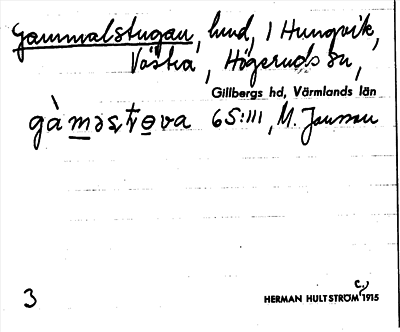 Gammalstugan, lund, 1 Hungvik,
Västra, Högeruds sn,
Gillbergs hd, Värmlands län
65:111, M. Jansson
3
HERMAN HULTSTRÖM 1915